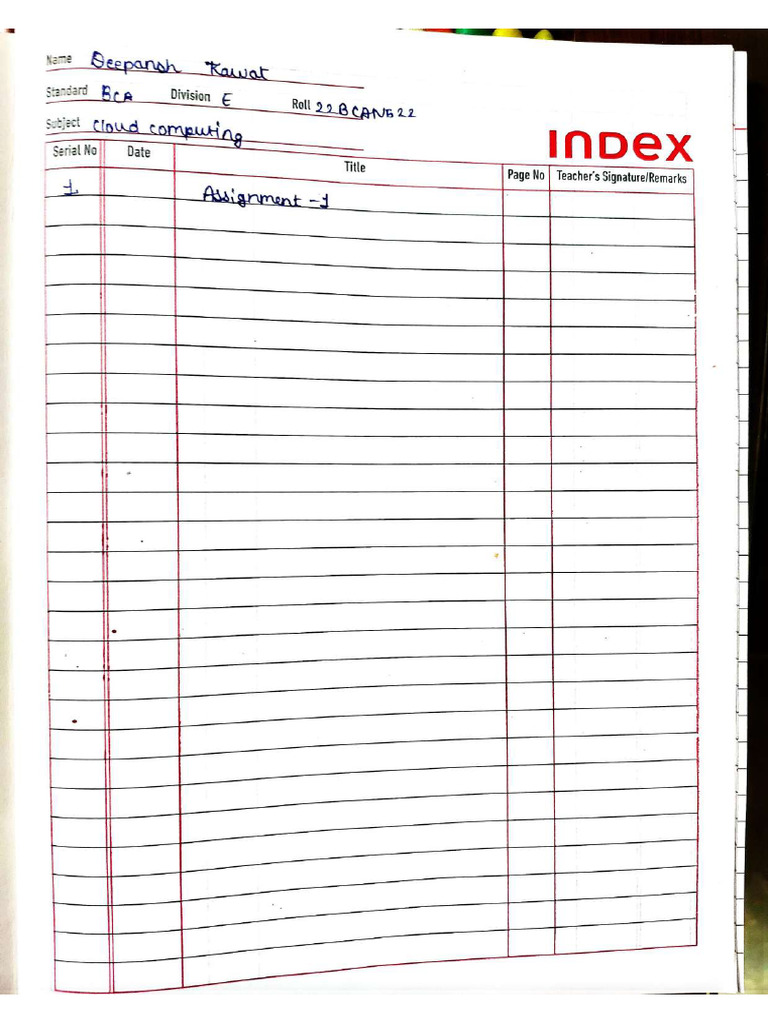 Name Deepansh Rawat
Standard BCA Division E Roll 22BCAN522
Subject Cloud computing
INDEX
Serial No Date Title Page No Teacher's Signature/Remarks
1 Assignment -1